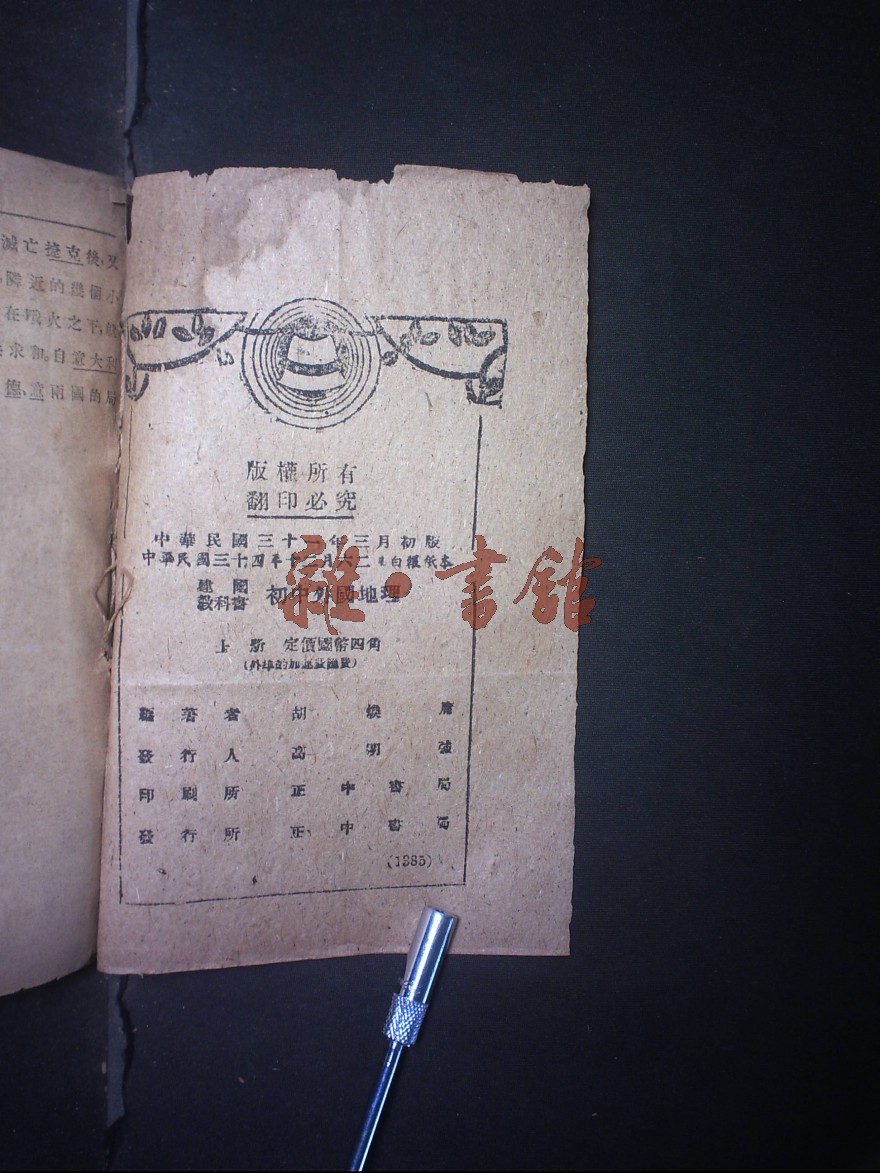 滅亡捷克後,又
隣近的幾個小
在戰火之下,
求和。自意大利
德,意兩國的局
版權所有
翻印必究
中華民國三十一年三月初版
中華民國三十四年十二月六二白報紙本
建國
教科書
初中外國地理
上册 定價國幣四角
(外埠酌加運費匯費)
編著者 胡煥庸
發行人 高明強
印刷所 正中書局
發行所 正中書局
(1385)
雜·書館